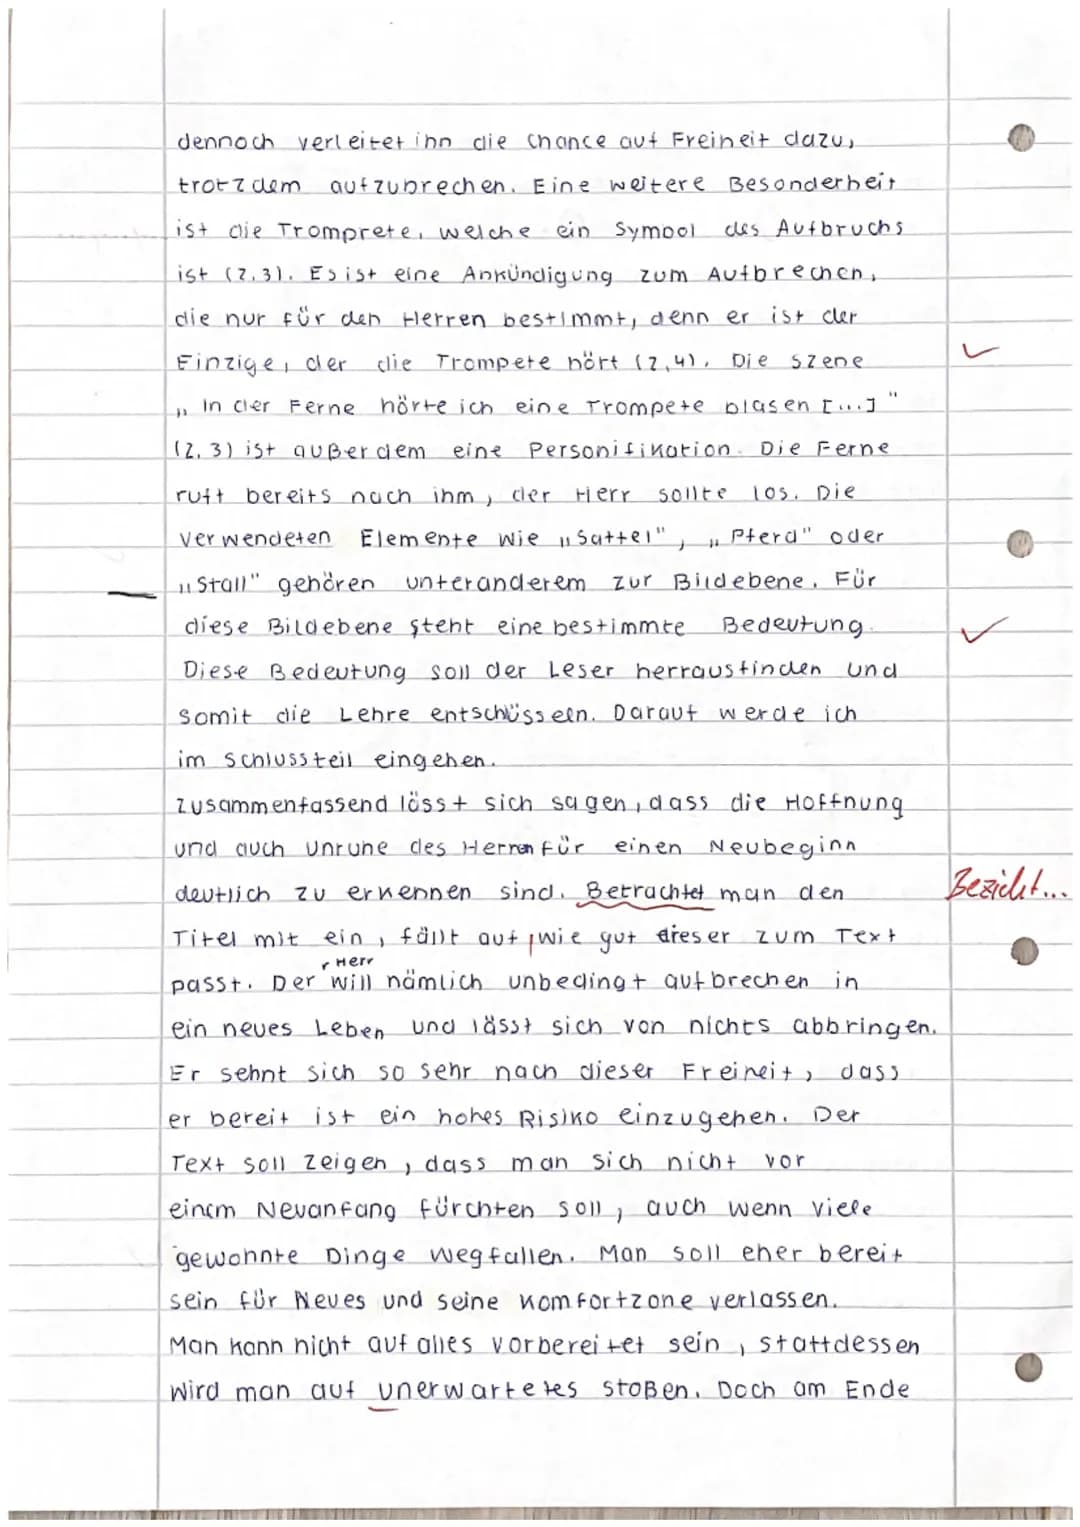 dennoch verleitet ihn die Chance auf Freiheit dazu,
trotzdem aufzubrechen. Eine weitere Besonderheit
ist die Tromprete, welche ein Symbol des Aufbruchs
ist (Z.3). Es ist eine Ankündigung zum Aufbrechen,
die nur für den Herren bestimmt, denn er ist der
Einzige, der die Trompete hört (Z.4). Die Szene
„In der Ferne hörte ich eine Trompete blasen [...]"
(Z.3) ist außerdem eine Personifikation. Die Ferne
ruft bereits nach ihm, der Herr sollte los. Die
verwendeten Elemente wie „Sattel", „Pferd" oder
„Stall" gehören unteranderem zur Bildebene. Für
diese Bildebene steht eine bestimmte Bedeutung.
Diese Bedeutung soll der Leser herrausfinden und
somit die Lehre entschüsseln. Darauf werde ich
im Schlussteil eingehen.
Zusammenfassend lässt sich sagen, dass die Hoffnung
und auch Unruhe des Herren für einen Neubeginn
deutlich zu erkennen sind. Betrachtet man den Bezieht...
Titel mit ein, fällt auf, wie gut dieser zum Text
Herr
passt. Der will nämlich unbedingt aufbrechen in
ein neues Leben und lässt sich von nichts abbringen.
Er sehnt sich so sehr nach dieser Freiheit, dass
er bereit ist ein hohes Risiko einzugehen. Der
Text soll zeigen, dass man sich nicht vor
einem Neuanfang fürchten soll, auch wenn viele
gewohnte Dinge wegfallen. Man soll eher bereit
sein für Neues und seine Komfortzone verlassen.
Man kann nicht auf alles vorbereitet sein, stattdessen
wird man auf unerwartetes stoßen. Doch am Ende